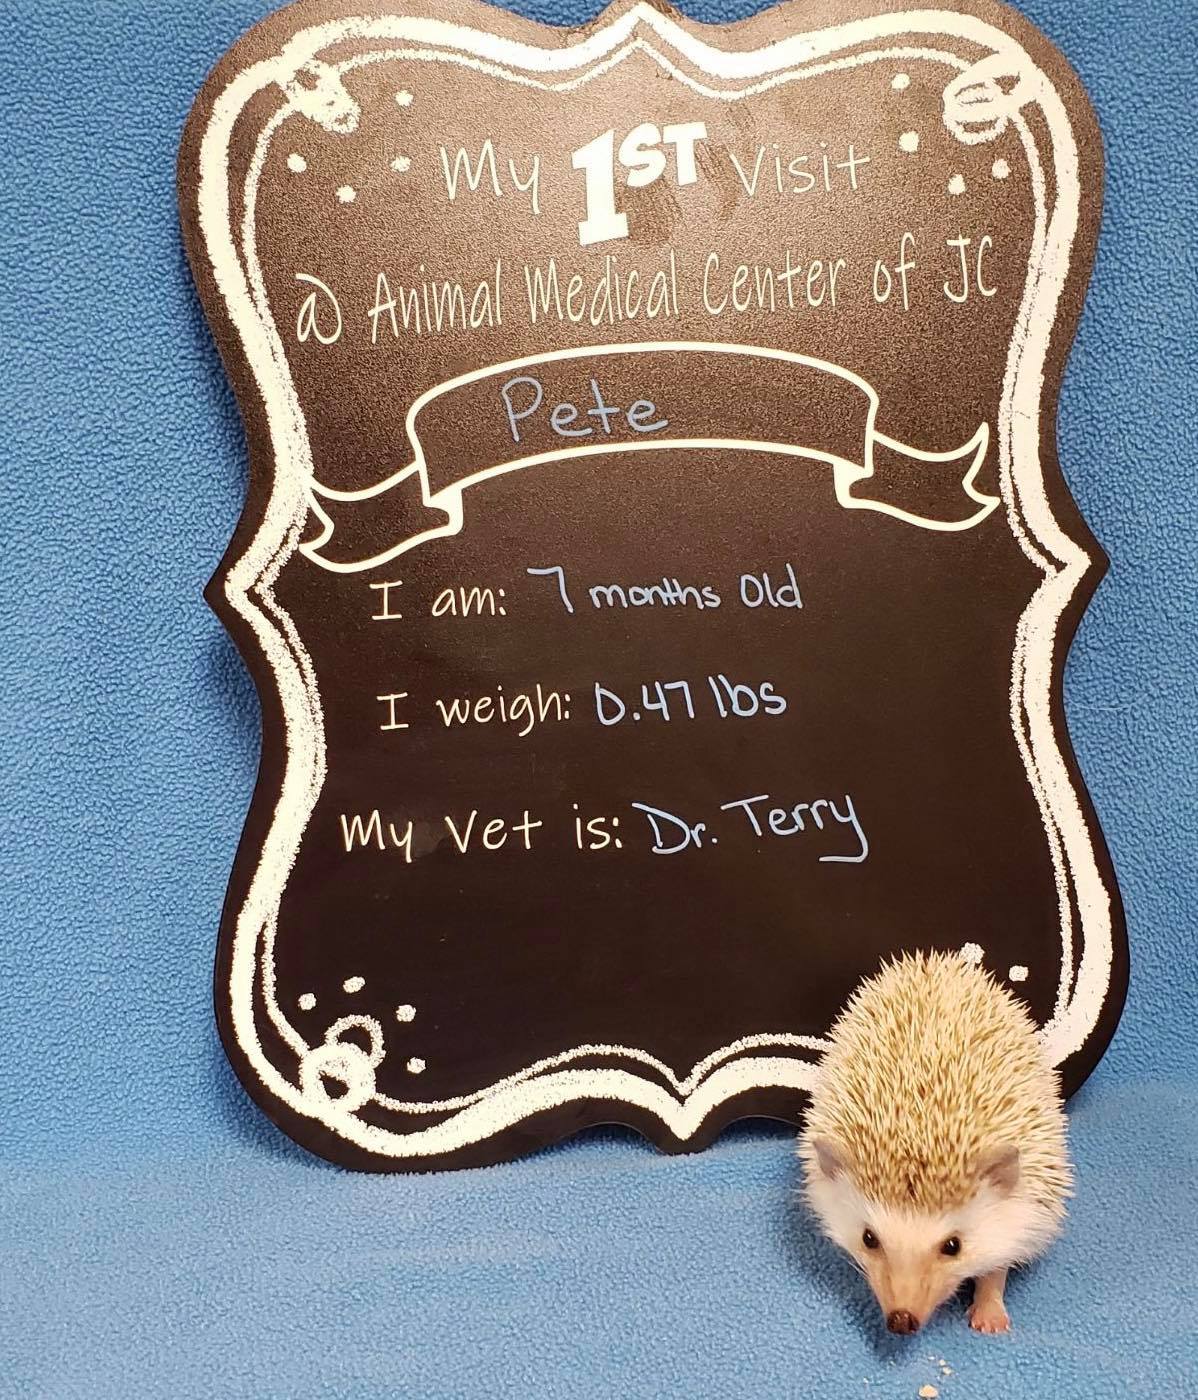 My 1ST Visit
@ Animal Medical Center of JC
Pete
I am: 7 months old
I weigh: 0.47 lbs
My Vet is: Dr. Terry